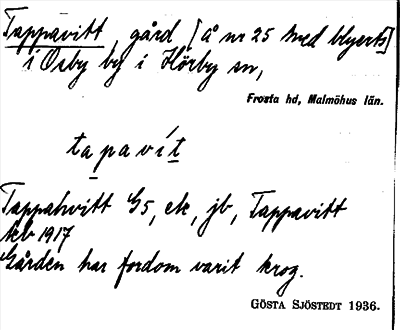 Tappavitt, gård [å nr 25 med blyerts]
i Osby by i Hörby sn,
Frosta hd, Malmöhus län.
tapavít
Tappahvitt G5, ek, jb, Tappavitt
Akb 1917
Gården har fordom varit krog.
GÖSTA SJÖSTEDT 1936.